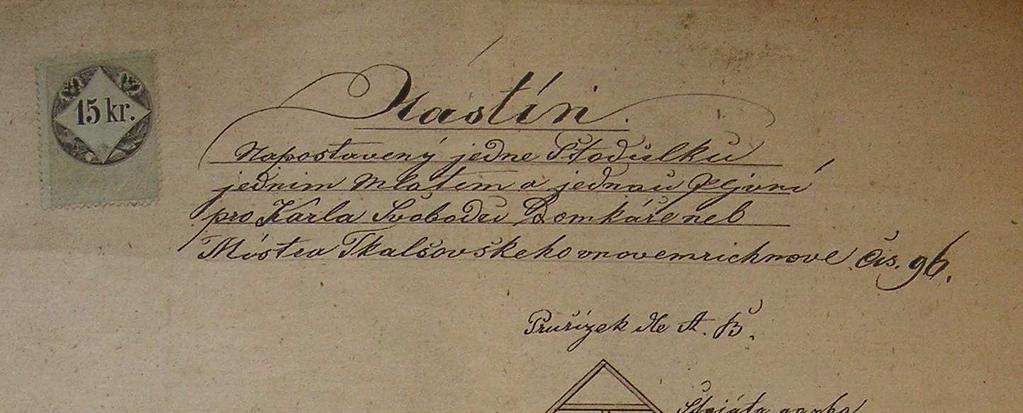 15 kr.
Nástín.
Napostavený jedne Stodülku
jednim Mlatem a jednaú Pljvní
pro Karla Svobodu Domkáře neb
Mistra Tkalcovskeho vnovemrichnove čis. 96.
Pruřízek Ne A. B.